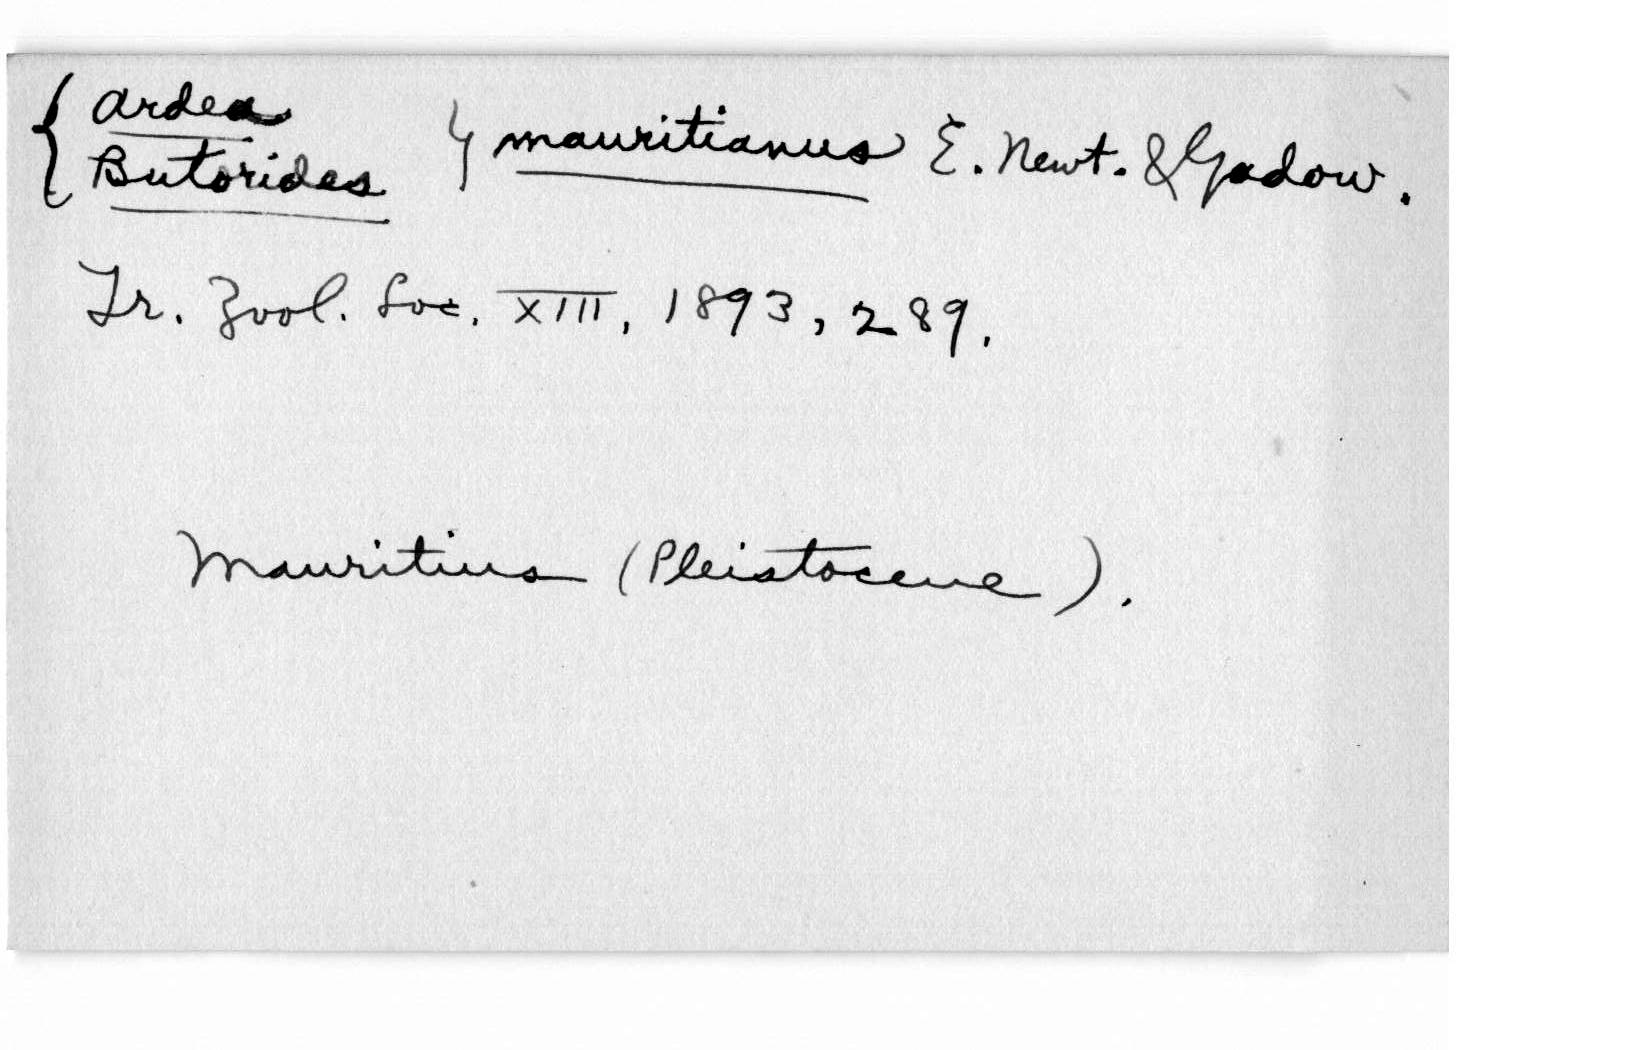 { Ardea
Butorides } mauritianus E. Newt. & Gadow.
Tr. Zool. Soc. XIII, 1893, 289.
Mauritius (Pleistocene).